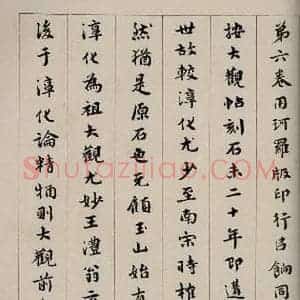 第六卷用珂羅版印行呂
按大觀帖刻石未二十年即遭
世故較淳化尤少至南宗時搉
然猶是原石也元顧玉山始有
淳化為祖大觀尤妙王澧翁云
後于淳化論精物則大觀前
Shufaziliao.com